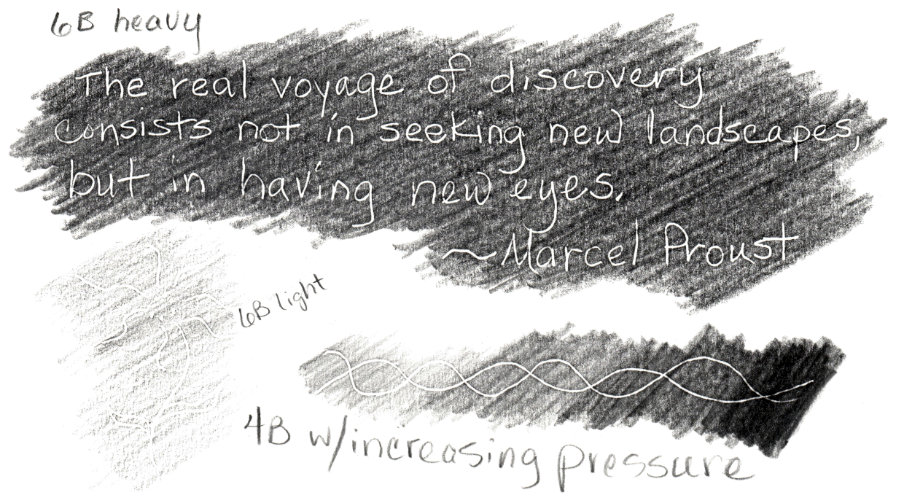 6B heavy
The real voyage of discovery
consists not in seeking new landscapes,
but in having new eyes.
~Marcel Proust
6B light
4B w/increasing pressure